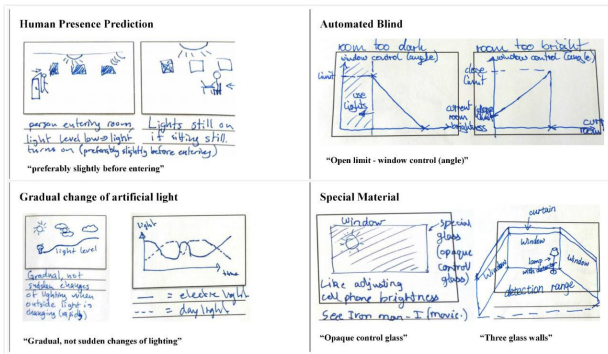 Human Presence Prediction
person entering room
light level low → light
turns on (preferably slightly before entering)
Lights still on
if sitting still.
"preferably slightly before entering"
Automated Blind
room too dark
window control (angle)
limit
use
lights
current
room
brightness
room too bright
window control (angle)
close
limit
current
room
"Open limit - window control (angle)"
Gradual change of artificial light
light level
Gradual, not
sudden changes
of lighting when
outside light is
changing (rapidly)
light
time
= electric light
= daylight
"Gradual, not sudden changes of lighting"
Special Material
window
special
glass
(opaque
control
glass)
Like adjusting
cell phone brightness
See Iron man - I (movie.)
"Opaque control glass"
curtain
Window
Window
Window
lamp
with detector
detection range
"Three glass walls"